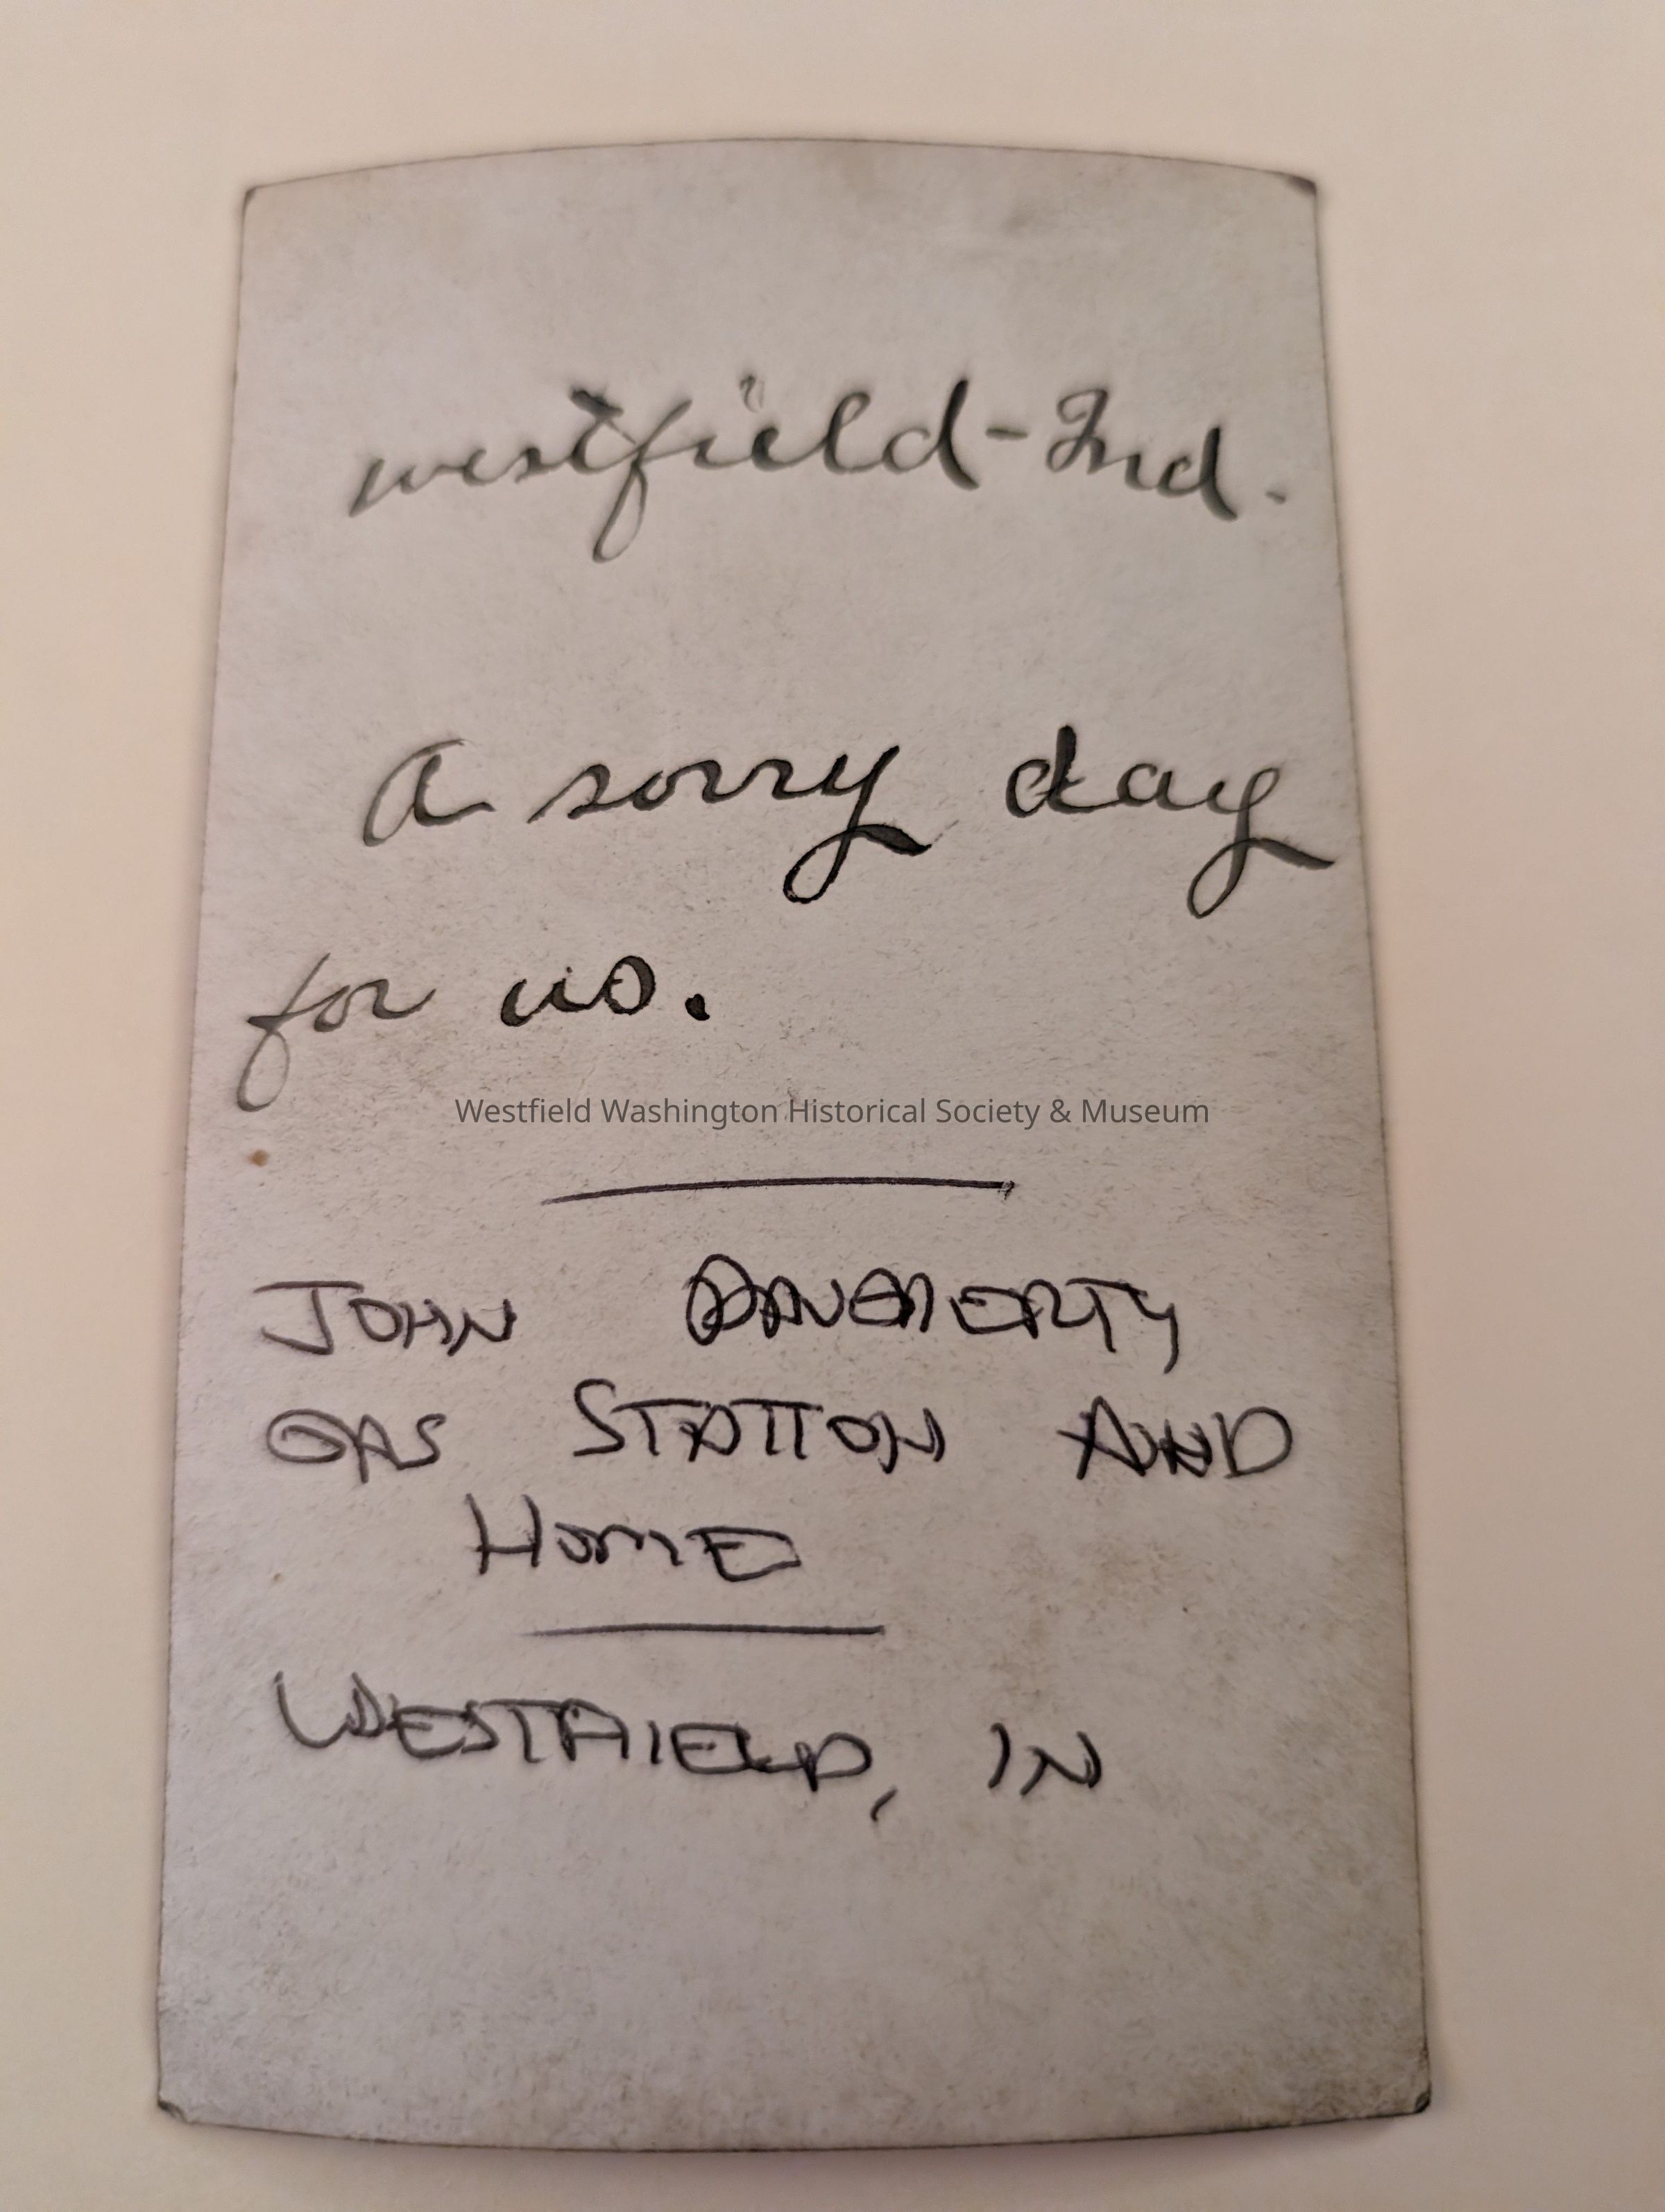 westfield-Ind.
A sorry day
for us.
Westfield Washington Historical Society & Museum
JOHN DAUGHERTY
GAS STATION AND
HOME
WESTFIELD, IN